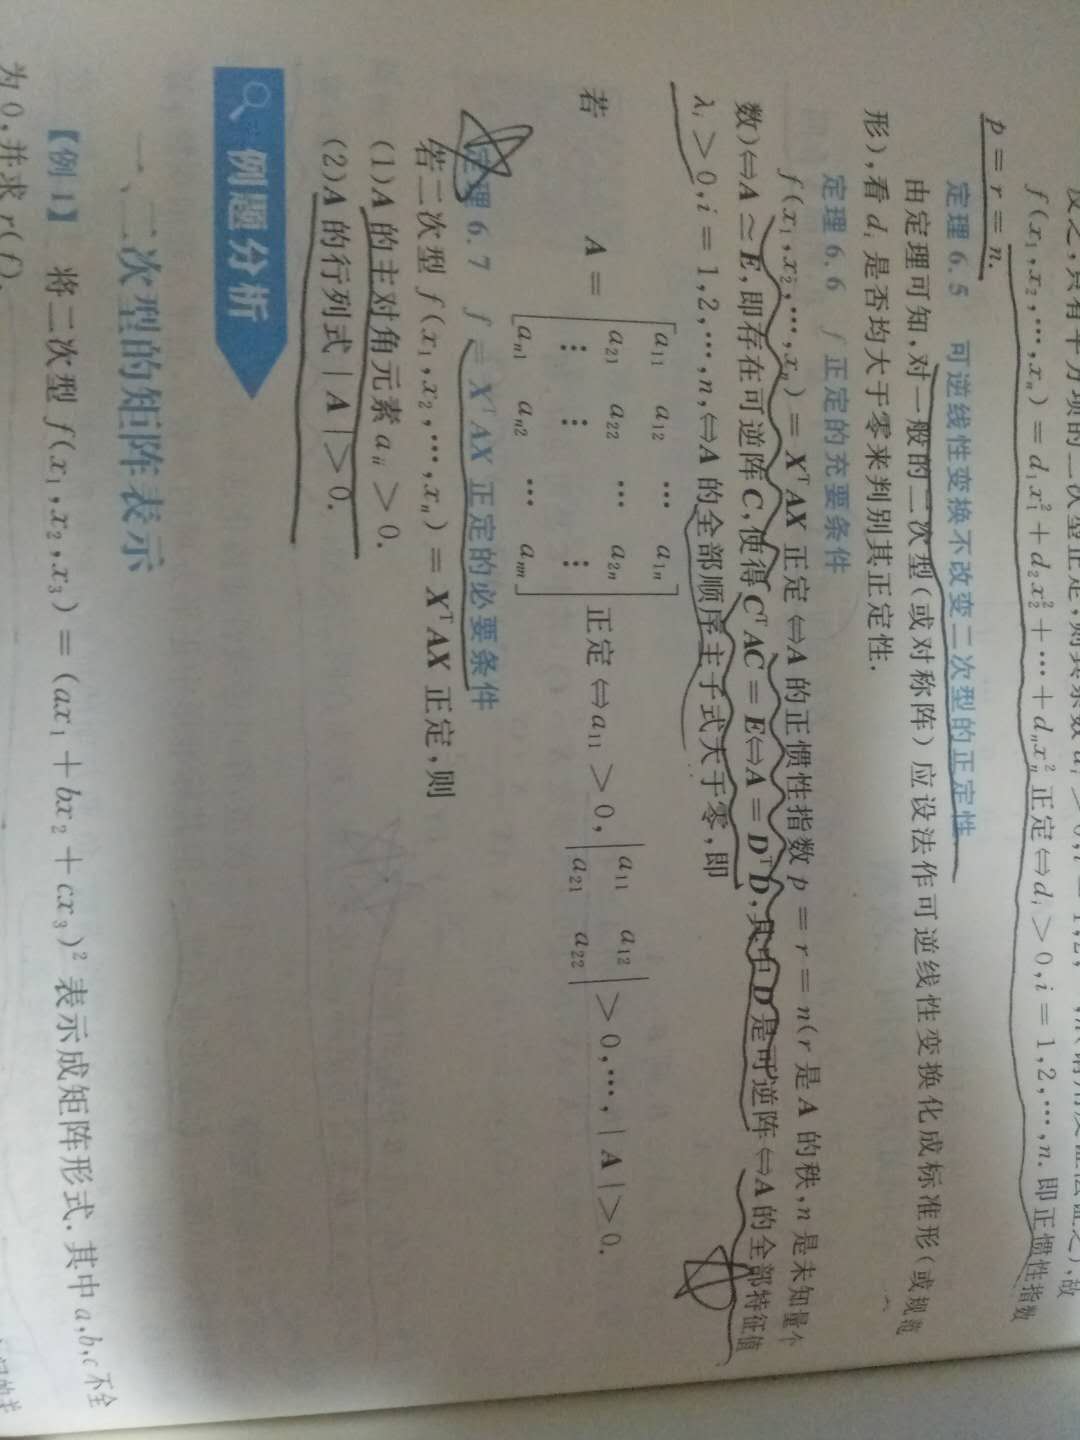 f(x₁,x₂,⋯,xₙ) = d₁x₁² + d₂x₂² + ⋯ + dₙxₙ² 正定⇔dᵢ > 0, i = 1,2,⋯,n. 即正惯性指数
p = r = n.
定理 6.5 可逆线性变换不改变二次型的正定性
由定理可知,对一般的二次型(或对称阵)应设法作可逆线性变换化成标准形(或规范
形),看 dᵢ 是否均大于零来判别其正定性.
定理 6.6 f 正定的充要条件
f(x₁,x₂,⋯,xₙ) = XᵀAX 正定⇔A 的正惯性指数 p = r = n(r 是 A 的秩,n 是未知量个
数)⇔A ≃ E,即存在可逆阵 C,使得 CᵀAC = E⇔A = DᵀD,其中 D 是可逆阵⇔A 的全部特征值
λᵢ > 0, i = 1,2,⋯,n,⇔A 的全部顺序主子式大于零,即
若 A = [a₁₁ a₁₂ ⋯ a₁ₙ
a₂₁ a₂₂ ⋯ a₂ₙ
⋮ ⋮ ⋮
aₙ₁ aₙ₂ ⋯ aₙₙ] 正定⇔a₁₁ > 0, |a₁₁ a₁₂
a₂₁ a₂₂| > 0,⋯,|A| > 0.
定理 6.7 f = XᵀAX 正定的必要条件
若二次型 f(x₁,x₂,⋯,xₙ) = XᵀAX 正定,则
(1)A 的主对角元素 aᵢᵢ > 0.
(2)A 的行列式 |A| > 0.
例题分析
一、二次型的矩阵表示
【例 1】 将二次型 f(x₁,x₂,x₃) = (ax₁ + bx₂ + cx₃)² 表示成矩阵形式.其中 a,b,c 不全
为 0,并求 r(f).